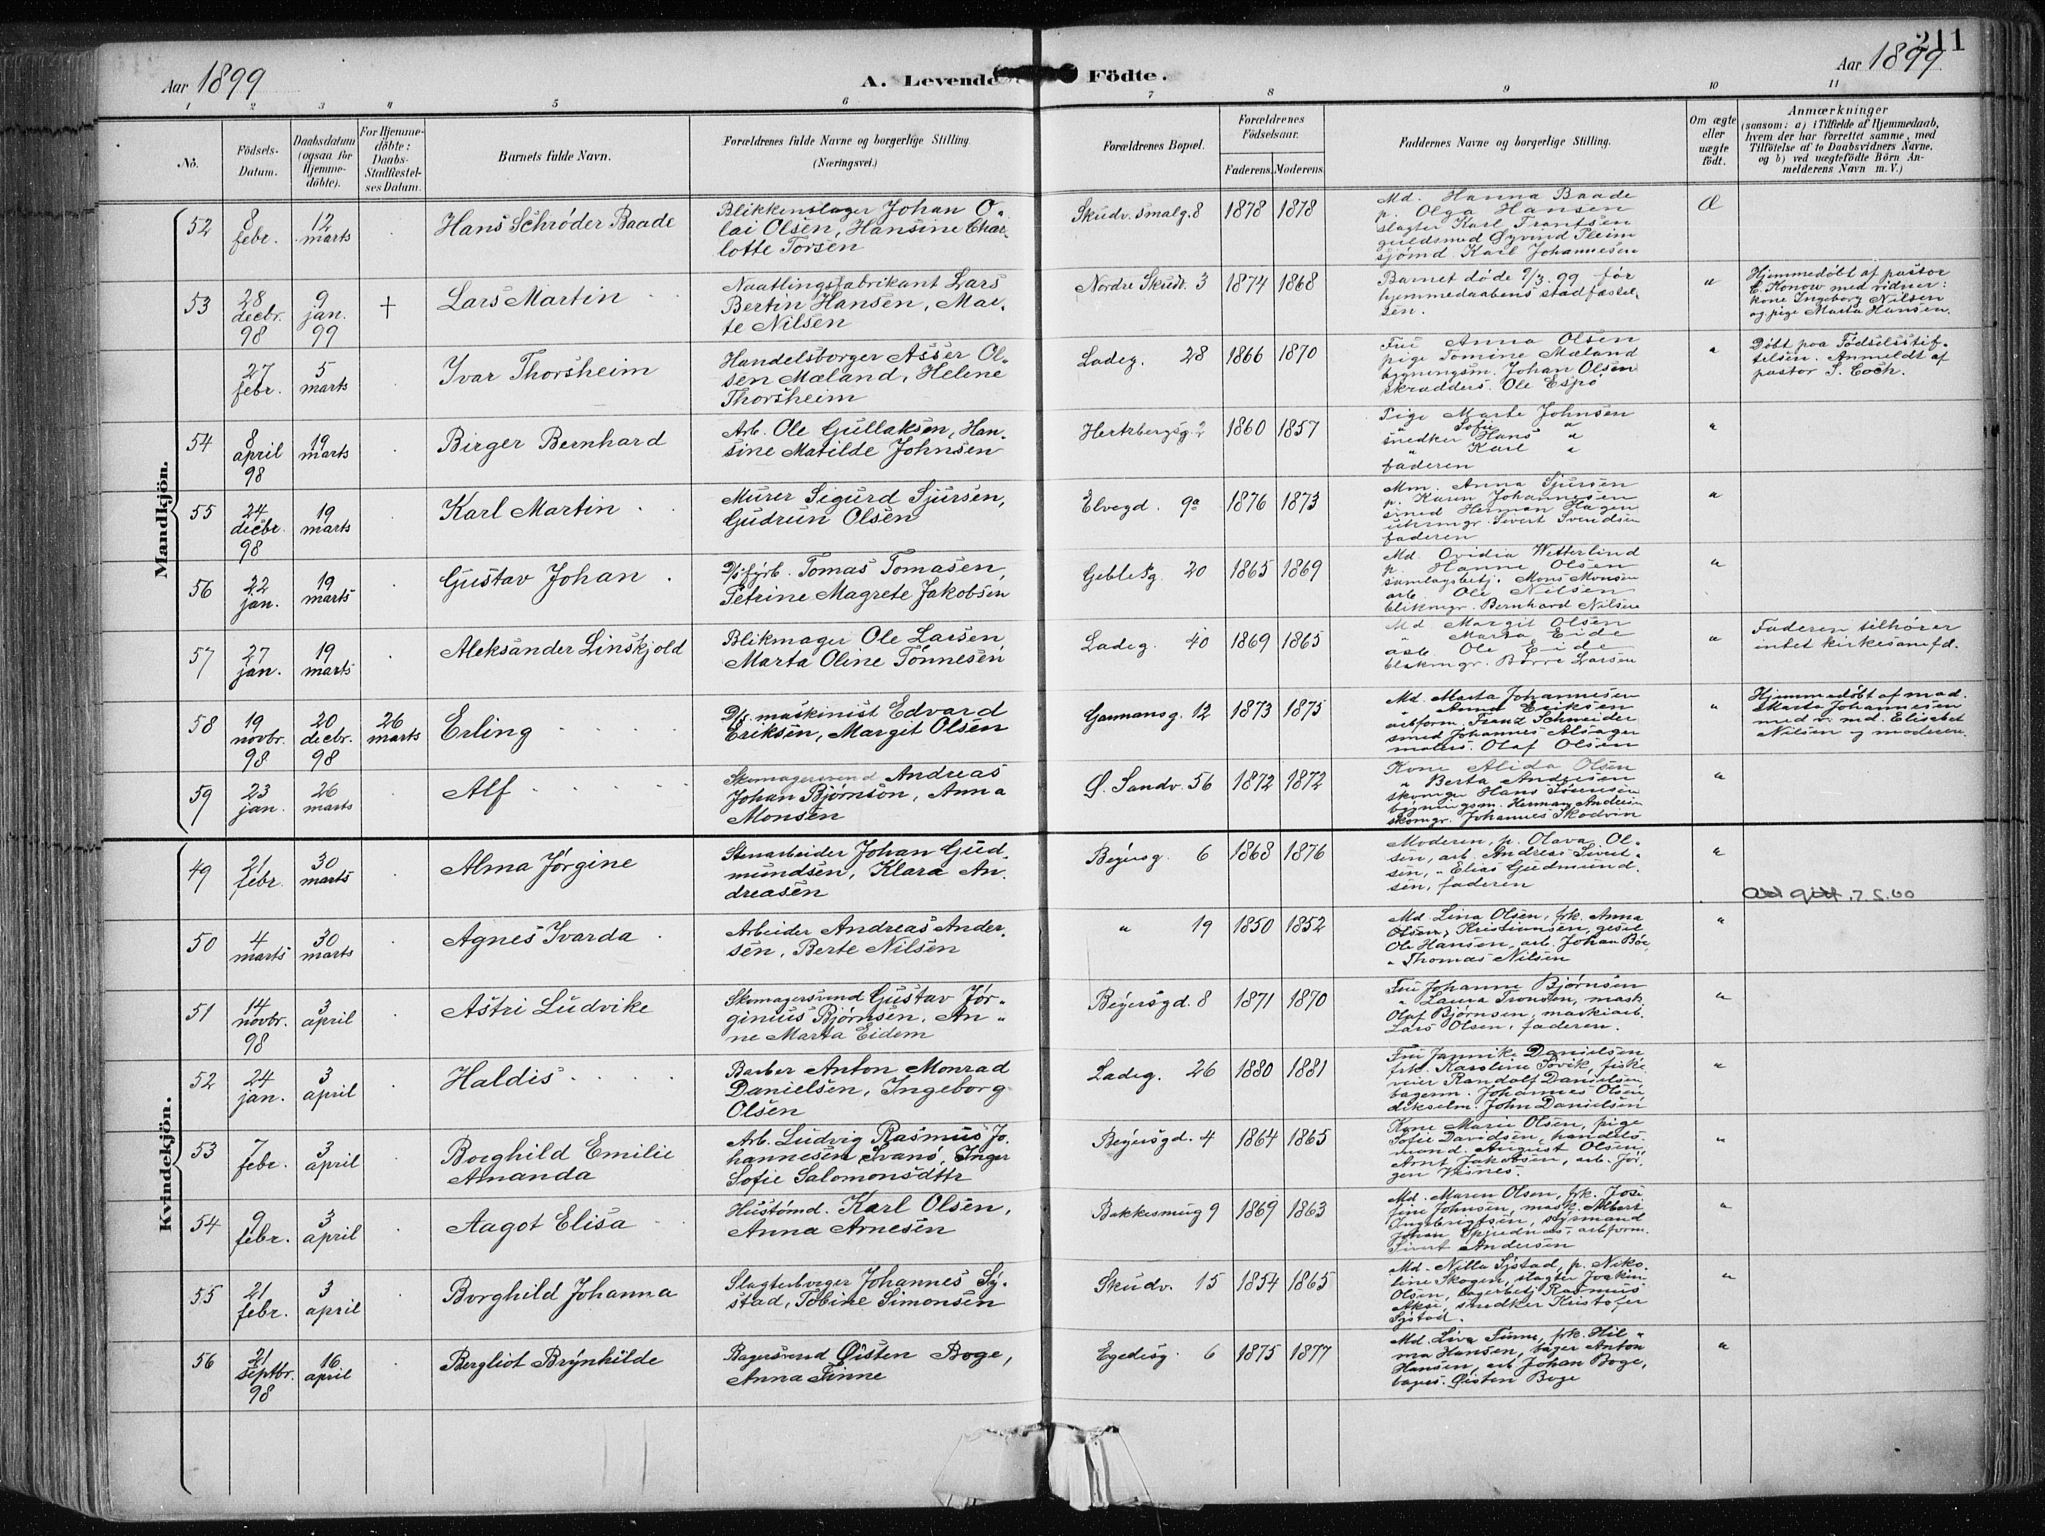 211
Aar 1899
A. Levende Födte.
Aar 1899
1 2 3 4 5 6 7 8 9 10 11
No.
Födsels-
Datum.
Daabsdatum
(ogsaa for
Hjemme-
döbte).
For Hjemme-
döbte:
Daabs-
Stadfæstel-
ses Datum.
Barnets fulde Navn.
Forældrenes fulde Navne og borgerlige Stilling
(Næringsvei.)
Forældrenes Bopæl.
Forældrenes
Födselsaar.
Faderens. Moderens.
Faddernes Navne og borgerlige Stilling.
Om ægte
eller
uægte
födt.
Anmærkninger
(saasom: a) i Tilfælde af Hjemmedaab,
hvem der har forrettet samme, med
Tilföielse af to Daabsvidners Navne,
og b) ved uægtefödte Börn An-
melderens Navn m. V.)
Mandkjön.
52
8
febr.
12
marts
Hans Schrøder Baade
Blikkenslager Johan O-
lai Olsen, Hansine Char-
lotte Torsen
Skudv. smalg. 8
1878 1878
Md. Hanna Baade
p. Olga Hansen
slagter Karl Frantsen
guldsmed Øyvind Pleim
sjømd. Karl Johannesen
Æ
53
28
decbr.
98
9
jan.
99
+
Lars Martin
Naatlingsfabrikant Lars
Bertin Hansen, Mar-
te Nilsen
Nordre Skudv. 3
1874 1868
Barnet døde 9/3. 99 før
hjemmedaabens stadfæstel-
sen.
"
Hjemmedøbt af pastor
E. Konow med vidner:
kone Ingeborg Nilsen
og pige Marta Hansen.
27
febr.
5
marts
Ivar Thorsheim
Handelsborger Asser Ol-
sen Mæland, Helene
Thorsheim
Ladeg. 28
1866 1870
Fru Anna Olsen
pige Tomine Mæland
bygningsm. Johan Olsen
skrædders. Ole Espø
"
Døbt paa Fødselsstif-
telsen. Anmeldt af
pastor S. Coch.
54
8
april
98
19
marts
Birger Bernhard
Arb. Ole Gullaksen, Han-
sine Matilde Johnsen
Hertzbergsg.
1860 1857
Pige Marte Johnsen
" Sofie "
snedker Hans "
" Karl "
faderen
"
55
24
decbr.
98
19
marts
Karl Martin
Murer Sigurd Sjursen,
Gudrun Olsen
Elvegd. 9a
1876 1873
Mm. Anna Sjursen
p. Karen Johannesen
smed Herman Hagen
uhrmgr. Sivert Svendsen
faderen
"
56
22
jan.
19
marts
Gustav Johan
D/s fyrb. Tomas Tomasen,
Petrine Magrete Jakobsen
Geblesg. 20
1865 1869
Md. Ovidia Wetterlind
p. Hanne Olsen
samlagsbetj. Mons Monsen
arb. Ole Nilsen
blikmgr. Bernhard Nilsen
"
57
27
jan.
19
marts
Aleksander Linskjold
Blikmager Ole Larsen
Marta Oline Tønnesen
Ladeg. 40
1869 1865
Md Margit Olsen
" Marta Eide
arb. Ole Eide
blikmgr. Børre Larsen
"
Faderen tilhører
intet kirkesamfd.
58
19
novbr.
98
20
decbr.
98
26
marts
Erling
D/s. maskinist Edvard
Eriksen, Margit Olsen
Garmansg. 12
1873 1875
Md. Marta Johannesen
" Anna Eriksen
arbform. Franz Schneider
smed Johannes Alsager
malers. Olaf Olsen
"
Hjemmedøbt af mad.
Marta Johannesen
med v. md. Elisabet
Nilsen og moderen.
59
23
jan.
26
marts
Alf
Skomagersvend Andreas
Johan Bjørnson, Anna
Monsen
Ø. Sandv. 56
1872 1872
Kone Alida Olsen
" Berta Andersen
skomgr Hans Sørensen
bygningsm. Herman Andersen
skomgr. Johannes Skodvin
"
Kvindekjön.
49
21
febr.
30
marts
Alma Jørgine
Stenarbeider Johan Gud-
mundsen, Klara An-
dreasen
Beyersg. 6
1868 1876
Moderen, p. Olava Ol-
sen, arb. Andreas Sivert-
sen, " Elias Gudmund-
sen, faderen
"
50
4
marts
30
marts
Agnes Ivarda
Arbeider Andreas Ander-
sen, Berte Nilsen
" 19
1850 1852
Md Lina Olsen, frk. Anna
Olsen, " Kristiansen, gesel
Ole Hansen, arb. Johan Bøe,
" Thomas Nilsen
"
7.5.60
51
14
novbr.
98
3
april
Astri Ludvike
Skomagersvend Gustav Jør-
ginius Bjørnsen, An-
ne Marta Eidem
Beyersgd. 8
1871 1870
Fru Johanne Bjørnsen
" Laura Tronsen, mask.
Olaf Bjørnsen, maskinarb.
Lars Olsen, faderen.
"
52
24
jan.
3
april
Haldis
Barber Anton Monrad
Danielsen, Ingeborg
Olsen
Ladeg. 26
1880 1881
Fru Jannike Danielsen
frk. Karoline Søvik, fiske
veier Randolf Danielsen,
bagerm. Johannes Olsen
dikselm. John Danielsen
"
53
7
febr.
3
april
Borghild Emilie
Amanda
Arb. Ludvig Rasmus Jo-
hannesen Svanø, Inger
Sofie Salomonsdttr
Beyersgd. 4
1864 1865
Kone Marie Olsen, pige
Sofie Davidsen, handels-
mand. August Olsen
Arnt Jakobsen, arb. Jør-
gen Hisnes.
"
54
9
febr.
3
april
Aagot Elisa
Hustømd. Karl Olsen,
Anna Arnesen
Bakkesmug 9
1869 1863
Md. Maren Olsen, frk. Jose-
fine Johnsen, mask. Albert
Ingebrigtsen, styrmand
Johan Gjerdnæs, arbform.
Sivert Andersen
"
55
21
febr.
3
april
Borghild Johanna
Slagterborger Johannes Sy-
stad, Tobine Simonsen
Skudv. 15
1854 1865
Md. Nilla Systad, p. Niko-
line Skogen, slagter Joakim
Olsen, bagerbetj Rasmus
Akse, snedker Kristofer
Systad.
"
56
21
septbr.
98
16
april
Bergliot Brynhilde
Bagersvend Øisten Boge,
Anna Finne
Egedesg. 6
1875 1877
Md. Liva Finne, frk. Hil-
ma Hansen, bager Anton
Hansen, arb Johan Boge,
bages. Øisten Boge
"